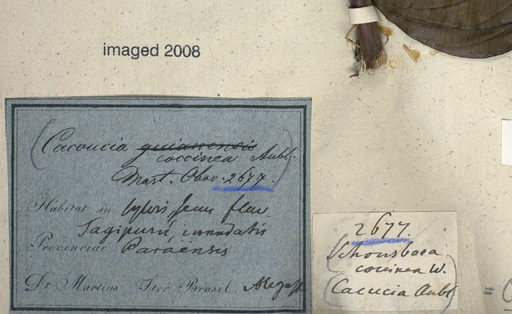 imaged 2008
(Cacoucia guianensis
coccinea Aubl.)
Mart. Obsv. 2677.
Habitat in sylvis secus fluv.
Sagipurú inundatis
Provinciae Paraënsis
Dr Martius Iter Brasil.
2677.
Schousboea
coccinea W.
(Cacucia Aubl)